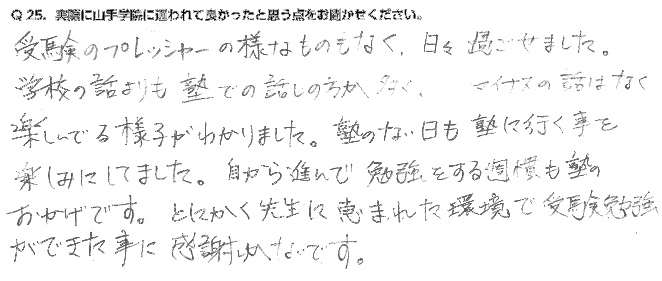 Q 25. 実際に山手学院に通われて良かったと思う点をお聞かせください。
受験のプレッシャーの様なものもなく、日々過ごせました。
学校の話よりも塾での話しの方が多く、マイナスの話はなく
楽しんでる様子がわかりました。塾のない日も塾に行く事を
楽しみにしてました。自から進んで勉強をする習慣も塾の
おかげです。とにかく先生に恵まれた環境で受験勉強
ができた事に感謝しかないです。